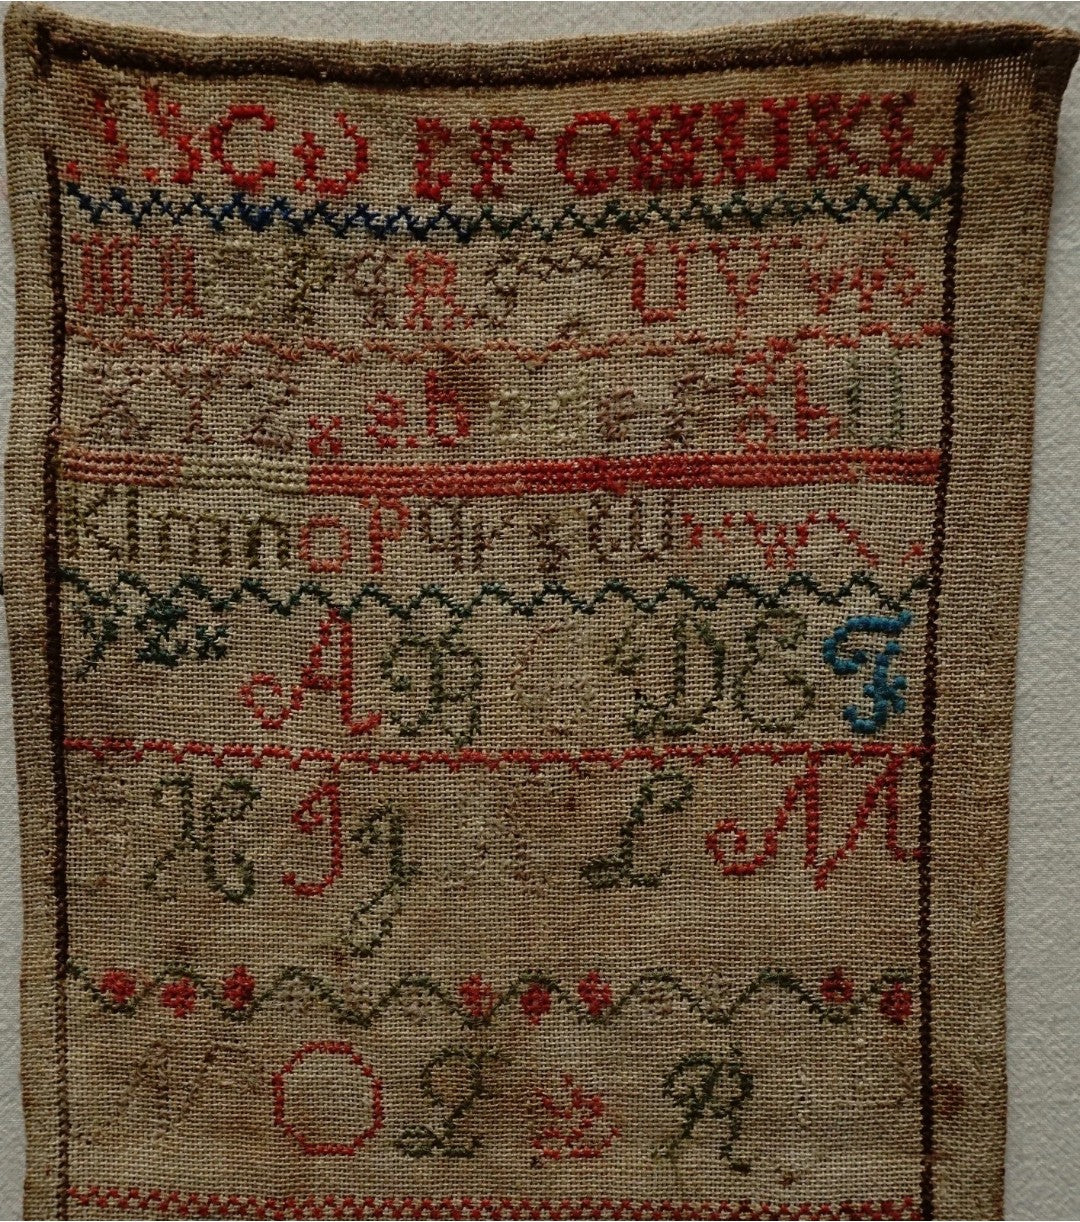 A B C D E F G H I J K L
M N O P Q R S T U V W
X Y Z x a b c d e f g h i j
k l m n o p q r s t u v w x
y z x A B C D E F
G H I J K L M
N O P Q R